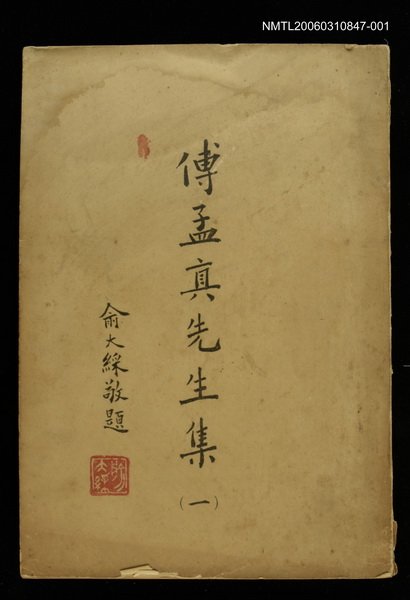 NMTL20060310847-001
傅孟真先生集
(一)
俞大綵敬題
俞大綵